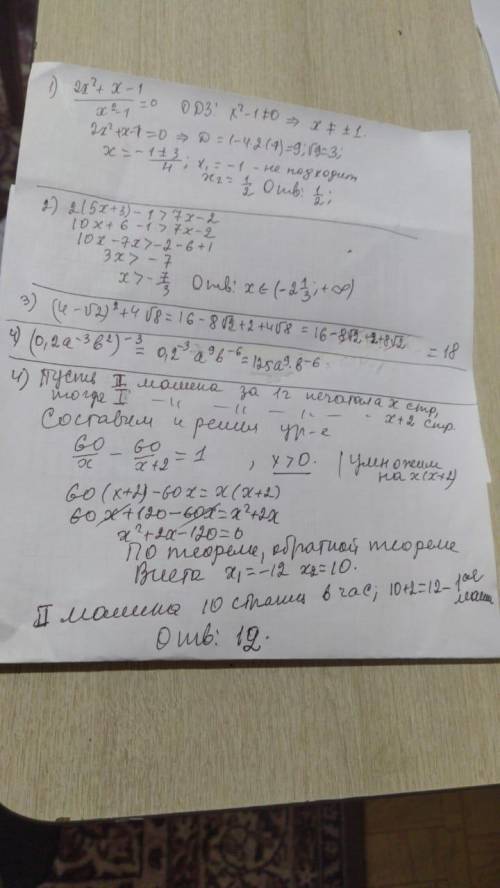 1) (2x² + x - 1)/(x² - 1) = 0 ОДЗ: x² - 1 ≠ 0 ⇒ x ≠ ± 1.
2x² + x - 1 = 0 ⇒ D = 1 - 4·2·(-1) = 9; √9 = 3;
x = (-1 ± 3)/4; x₁ = -1 - не подходит
x₂ = 1/2 Отв: 1/2;
2) 2(5x+3) - 1 > 7x - 2
10x + 6 - 1 > 7x - 2
10x - 7x > -2 - 6 + 1
3x > - 7
x > - 7/3 Отв: x ∈ (-2 1/3; +∞)
3) (4 - √2)² + 4√8 = 16 - 8√2 + 2 + 4√8 = 16 - 8√2 + 2 + 8√2 = 18
4) (0,2a⁻³b²)⁻³ = 0,2⁻³a⁹b⁻⁶ = 125a⁹b⁻⁶
4) Пусть II машина за 1г печатала x стр,
тогда I -"- -"- - " - x+2 стр.
Составим и решим ур-е
60/x - 60/(x+2) = 1 , x > 0. | умножим на x(x+2)
60(x+2) - 60x = x(x+2)
60x + 120 - 60x = x² + 2x
x² + 2x - 120 = 0
По теореме, обратной теореме
Виета x₁ = -12 x₂ = 10.
II машина 10 страниц в час; 10+2=12 - 1ая маш
Отв: 12.